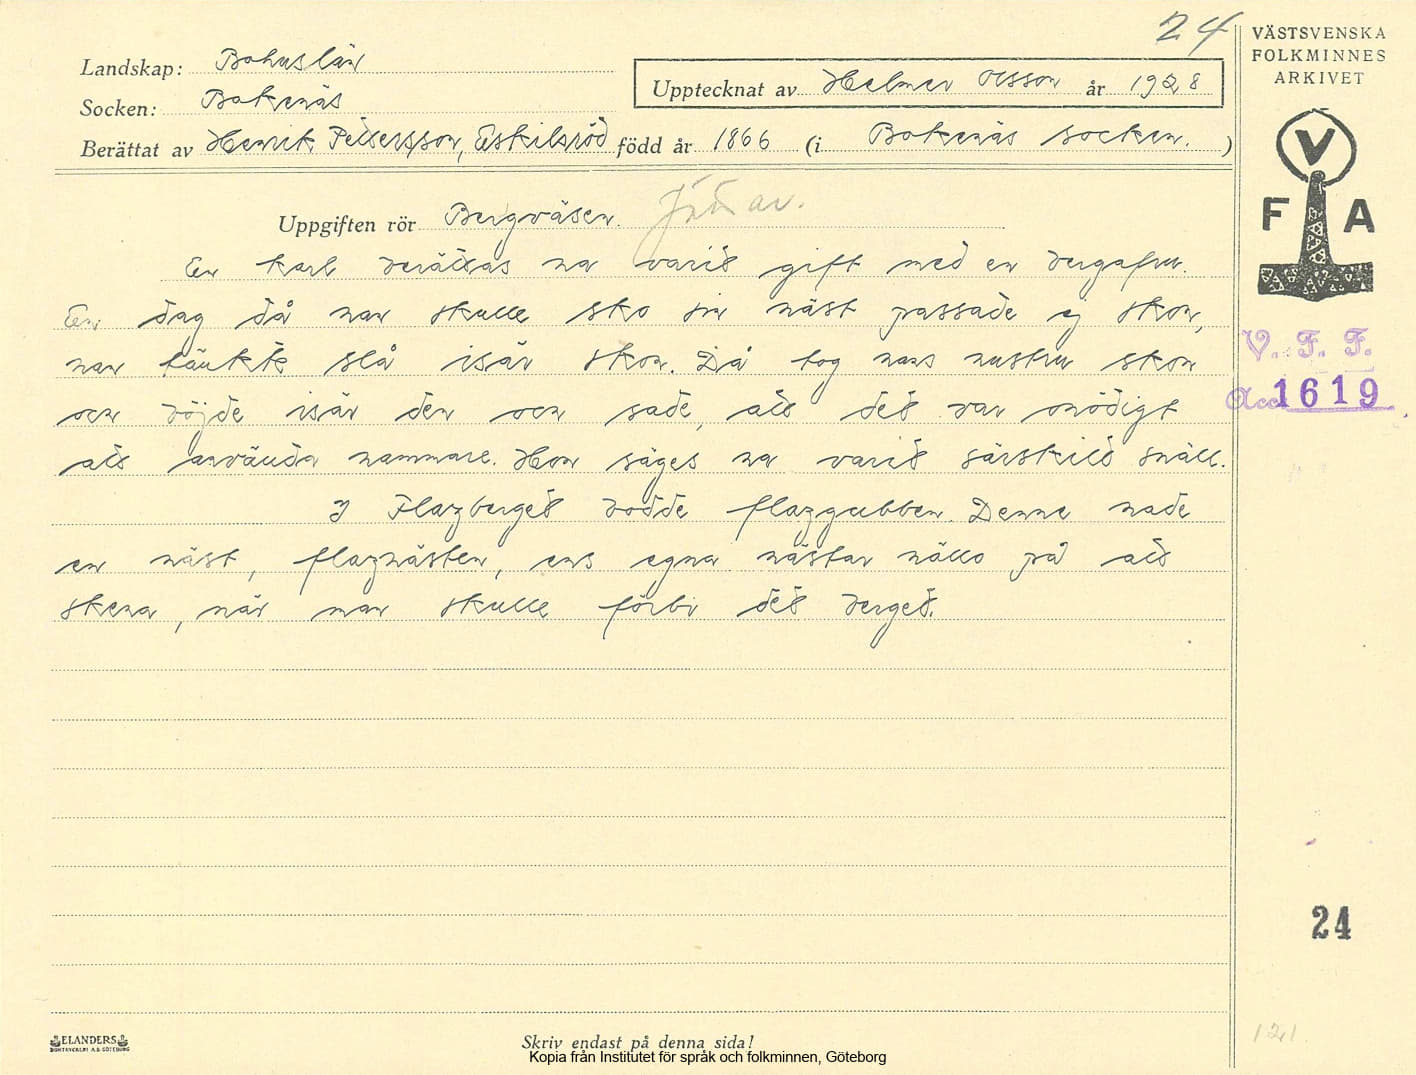 24
VÄSTSVENSKA
FOLKMINNES
ARKIVET
Landskap: Bohuslän
Socken: Bokenäs
Upptecknat av Helmer Olsson år 1928
Berättat av Henrik Pettersson, Eskilsröd född år 1866 (i Bokenäs socken. )
V
F A
Uppgiften rör Bergväsen.
En karl berättas ha varit gift med en bergafru.
En dag då han skulle sko sin häst passade ej skon,
han tänkte slå isär skon. Då tog hans hustru skon
och böjde isär den och sade, att det var onödigt
att använda hammare. Hon säges ha varit särskilt snäll.
I Flagberget bodde flaggubben. Denne hade
en häst, flaghästen, ens egna hästar höllo på att
skena, när man skulle förbi det berget.
V. F. F.
Acc 1619
24
121.
ELANDERS
BOKTRYCKERI A.B. GÖTEBORG
Skriv endast på denna sida!
Kopia från Institutet för språk och folkminnen, Göteborg